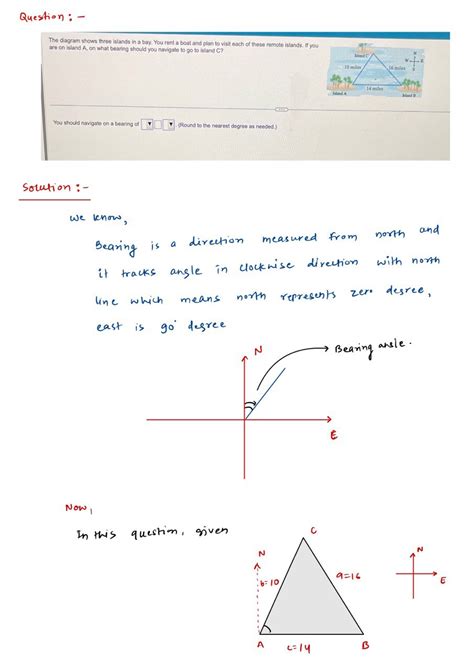 Question :-
The diagram shows three islands in a bay. You rent a boat and plan to visit each of these remote islands. If you
are on island A, on what bearing should you navigate to go to island C?
Island C
N
W E
S
10 miles
16 miles
14 miles
Island A
Island B
You should navigate on a bearing of ▼ ▼. (Round to the nearest degree as needed.)
Solution :-
We know,
Bearing is a direction measured from north and
it tracks angle in clockwise direction with north
line which means north represents zero degree,
east is 90° degree
N
Bearing angle.
E
Now,
In this question, given
C
N
b=10
a=16
N
E
A
c=14
B